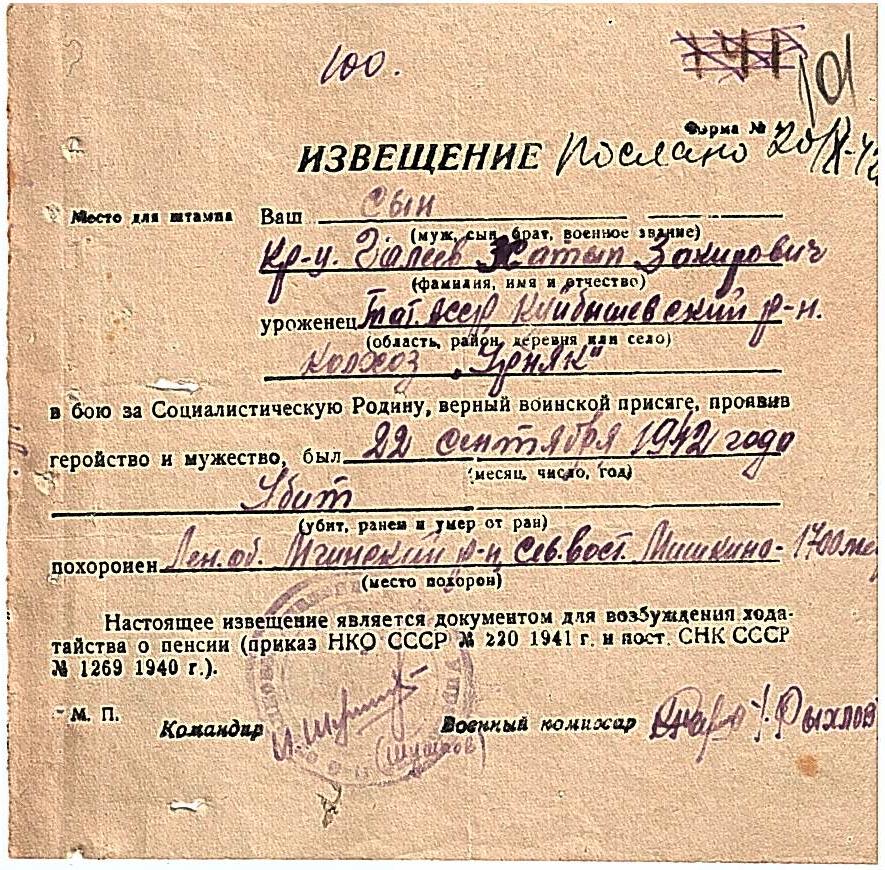 100.
101
Форма № 4
ИЗВЕЩЕНИЕ Послано 20/X-42
Место для штампа Ваш сын
(муж, сын, брат, военное звание)
кр-ц. Галеев Хатып Закирович
(фамилия, имя и отчество)
уроженец Тат. АССР Куйбышевский р-н.
(область, район, деревня или село)
Колхоз „Урняк"
в бою за Социалистическую Родину, верный воинской присяге, проявив
геройство и мужество, был 22 сентября 1942 года
(месяц, число, год)
Убит
(убит, ранен и умер от ран)
похоронен Лен. об. Мгинский р-н сев. вост. Мишкино - 1700 ме
(место похорон)
Настоящее извещение является документом для возбуждения хода-
тайства о пенсии (приказ НКО СССР № 220 1941 г. и пост. СНК СССР
№ 1269 1940 г.).
М. П.
Командир Военный комиссар Рыхлов